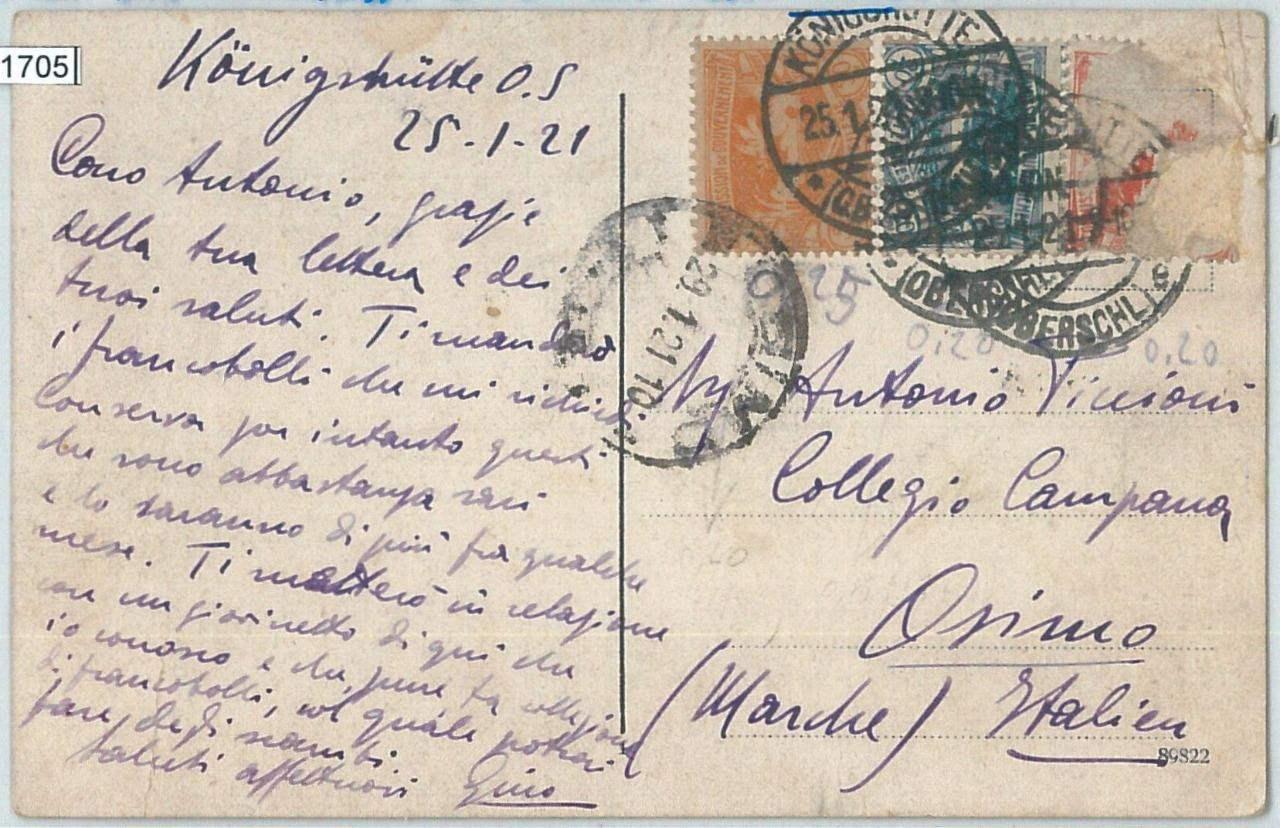 1705
Königshütte O.S
25-1-21
Caro Antonio, grazie
della tua lettera e dei
tuoi saluti. Ti manderò
i francobolli che mi richiedi
Conserva per intanto questi
che sono abbastanza rari
e lo saranno di più fra qualche
mese. Ti metterò in relazione
con un giovinetto di qui che
io conosco e che pure fa collezione
di francobolli, col quale potrai
fare degli scambi.
Saluti affettuosi Gino
KÖNIGSHÜTTE
25.1.21
(OBERSCHL.)
COMMISSION DE GOUVERNEMENT
OSIMO
29.1.21.10
25
0,20
0.20
Antonio
Collegio Campana
Osimo
(Marche) Italien
89822